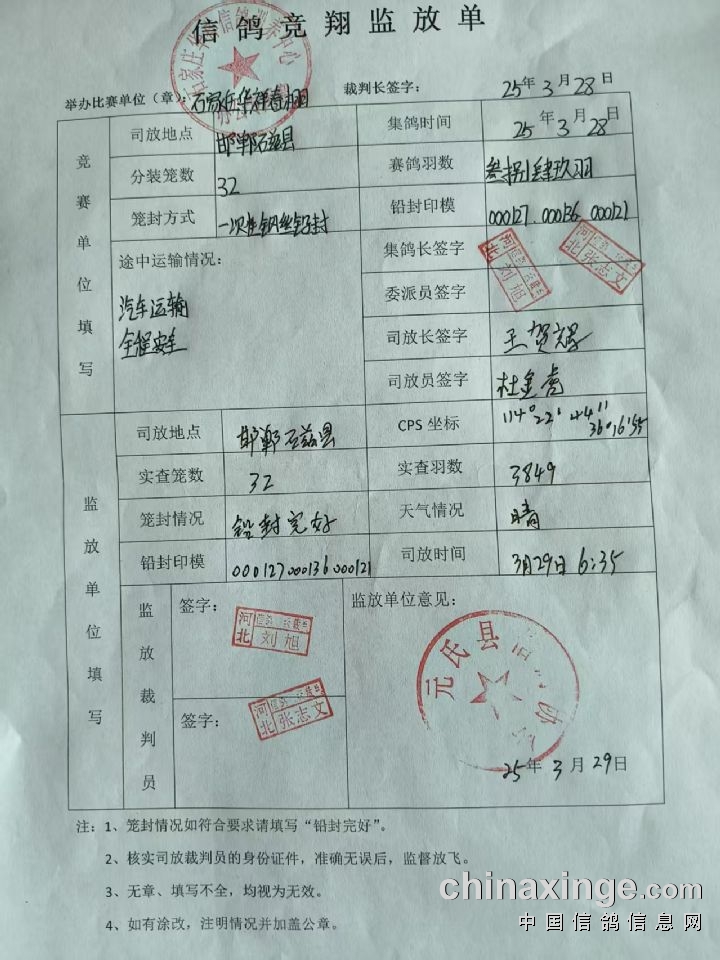 信鸽竞翔监放单
举办比赛单位（章）：石家庄华祥春棚 裁判长签字： 25年3月28日
竞赛单位填写
司放地点 邯郸磁县 集鸽时间 25年3月28日
分装笼数 32 赛鸽羽数 叁捌肆玖羽
笼封方式 一次性钢丝铅封 铅封印模 000127.000136.000121
途中运输情况：
汽车运输
全程安全
集鸽长签字 河北 刘旭 河北 张志文
委派员签字
司放长签字 王贺
司放员签字 杜金
监放单位填写
司放地点 邯郸磁县 CPS 坐标 114°22'44"
36°16'55
实查笼数 32 实查羽数 3849
笼封情况 铅封完好 天气情况 晴
铅封印模 000127 000136 000121 司放时间 3月29日 6:35
监放裁判员
签字： 河北 刘旭
签字： 河北 张志文
监放单位意见：
元氏县信鸽协会
25年3月29日
注：1、笼封情况如符合要求请填写“铅封完好”。
2、核实司放裁判员的身份证件，准确无误后，监督放飞。
3、无章、填写不全，均视为无效。
4、如有涂改，注明情况并加盖公章。
chinaxinge.com
中国信鸽信息网